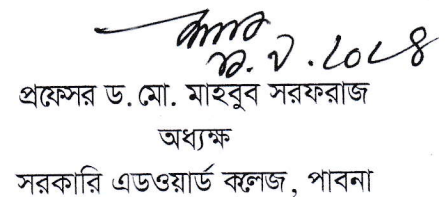 প্রফেসর ড. মো. মাহবুব সরফরাজ
অধ্যক্ষ
সরকারি এডওয়ার্ড কলেজ, পাবনা